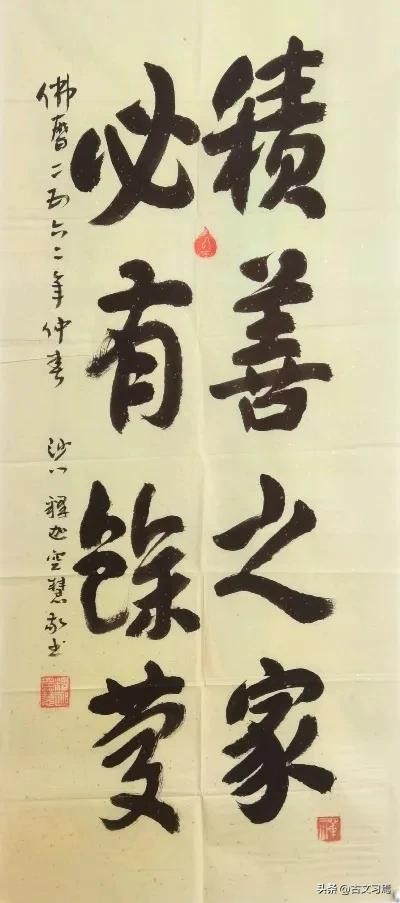 積善之家
必有餘慶
佛曆二五六二年仲春 沙门 釋迦空慧敬书
头条 @古文习焉